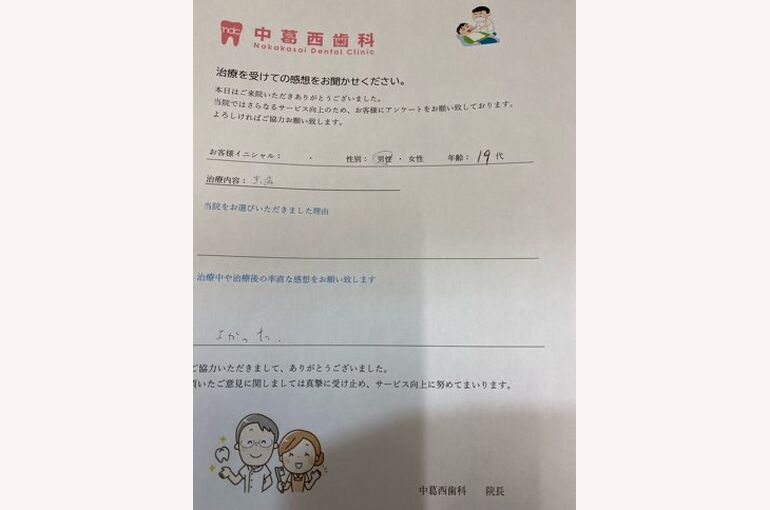 ndc
中葛西歯科
Nakakasai Dental Clinic
治療を受けての感想をお聞かせください。
本日はご来院いただきありがとうございました。
当院ではさらなるサービス向上のため、お客様にアンケートをお願い致しております。
よろしければご協力お願い致します。
お客様イニシャル： ・ 性別： 男性 ・ 女性 年齢： 19 代
治療内容：
当院をお選びいただきました理由
治療中や治療後の率直な感想をお願い致します
よかった.
ご協力いただきまして、ありがとうございました。
頂いたご意見に関しましては真摯に受け止め、サービス向上に努めてまいります。
中葛西歯科 院長